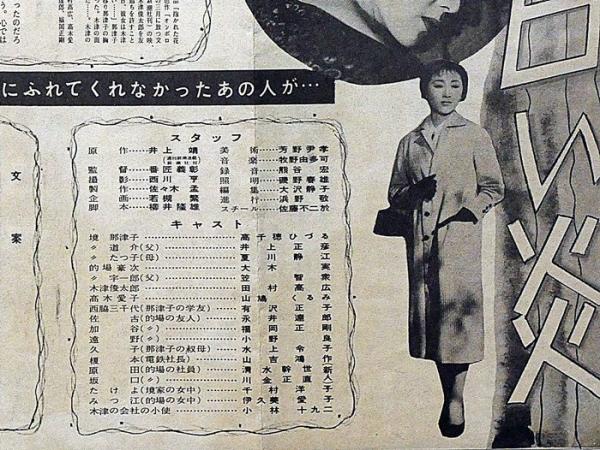 にふれてくれなかったあの人が…
白い炎
文案
スタッフ
原作 井上靖
監督 番匠義彰
撮影 西川亨
製作 佐々木孟
企画 若槻繁
脚本 柳井隆雄
美術 芳野尹孝
音楽 牧野由多可
録音 熊谷宏
照明 磯野春雄
編集 大沢静子
進行 浜野敬
スチール 佐藤不二於
キャスト
境那津子 高千穂ひづる
〃道介(父) 井上正彦
〃たつ子(母) 夏川静江
的場豪次 大木実
〃宇一郎(父) 笠智衆
木津俊太郎 田村高広
高木愛子 山鳩くるみ
西脇三千代(那津子の学友) 有沢正子
佐古(的場の友人) 永井達郎
加谷(〃) 福岡正剛
遠野(〃) 小野良
久子(那津子の叔母) 水上令子
榎本(電鉄社長) 山吉鴻作
原田(的場の社員) 清水幹世新人
坂口(〃) 川金正直
たけよ(境家の女中) 千村洋子
みつ江(的場の女中) 伊久美愛子
木津の会社の小使 小林十九二